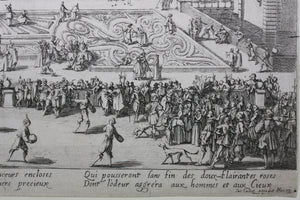 ceurs encloses
Qui pousseront sans fin des doux-flairantes roses
urs precieux
Dont lodeur aggréra aux hommes et aux Cieux.